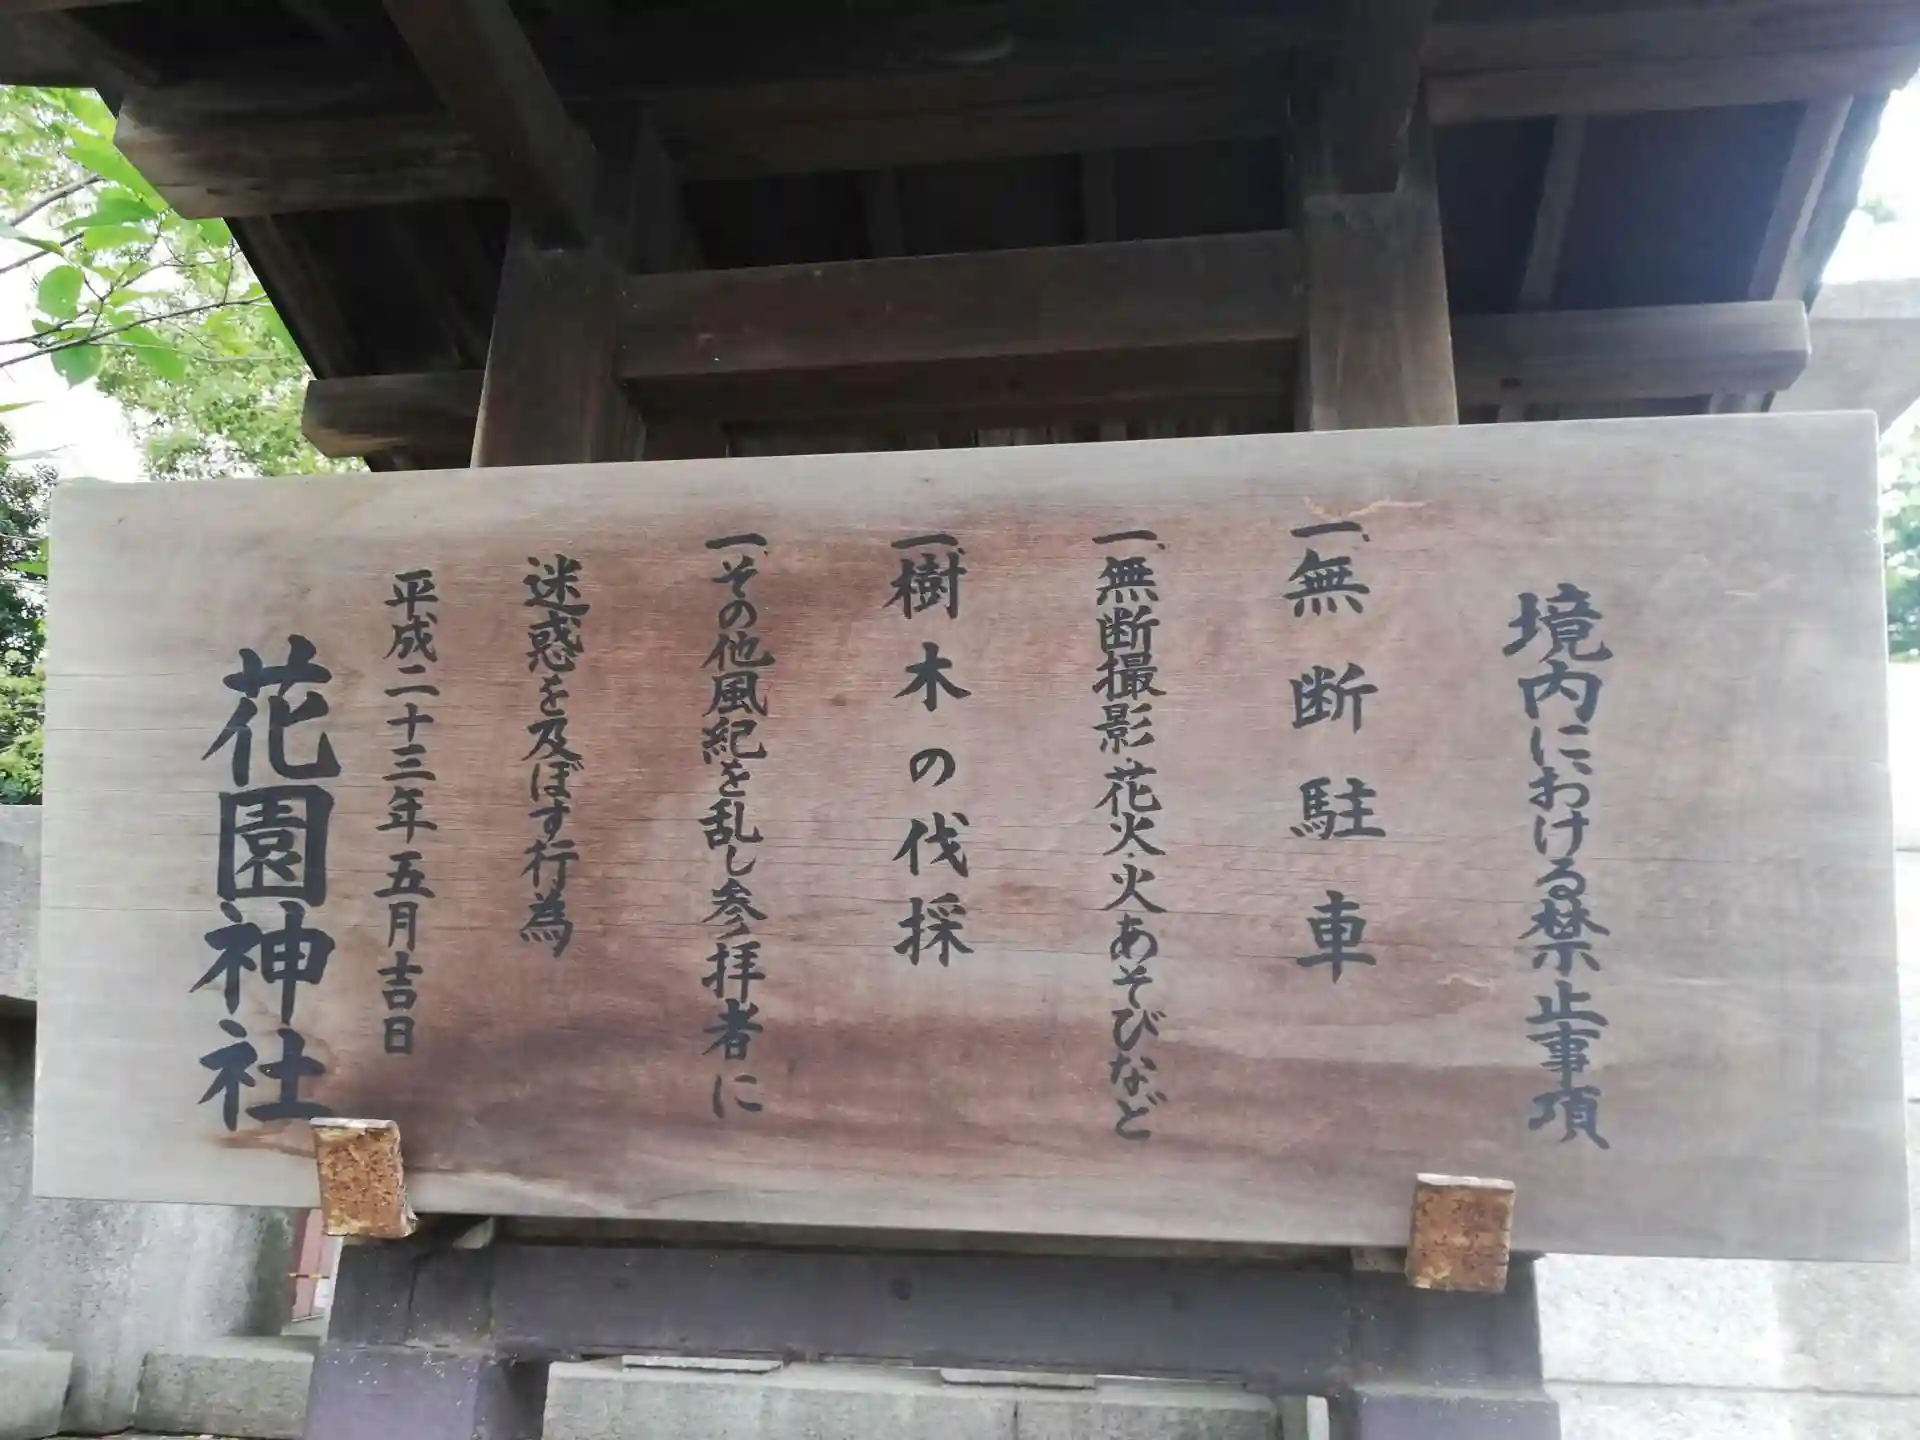 境内における禁止事項
一、無断駐車
一、無断撮影・花火・火あそびなど
一、樹木の伐採
一、その他風紀を乱し参拝者に
迷惑を及ぼす行為
平成二十三年五月吉日
花園神社